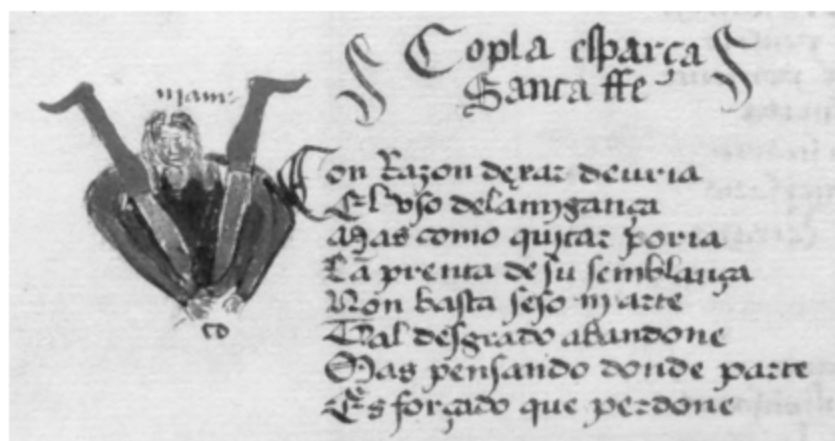 Copla esparça
Santa ffe
Con Razon dexar deuria
El vso delamigança
Mas como quitar poria
La prenta de su semblança
Non basta seso nj arte
Tal desgrado abandone
Mas pensando donde parte
Es forçado que perdone
co